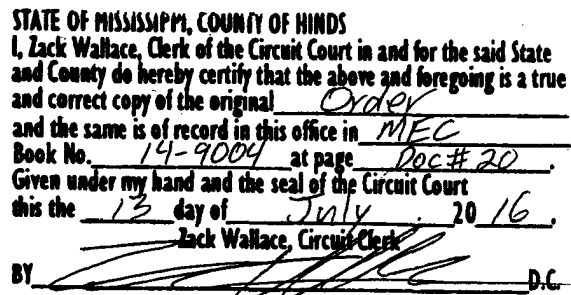 STATE OF MISSISSIPPI, COUNTY OF HINDS
I, Zack Wallace, Clerk of the Circuit Court in and for the said State
and County do hereby certify that the above and foregoing is a true
and correct copy of the original Order
and the same is of record in this office in MEC
Book No. 14-9004 at page Doc# 20.
Given under my hand and the seal of the Circuit Court
this the 13 day of July, 20 16.
Zack Wallace, Circuit Clerk
BY D.C.